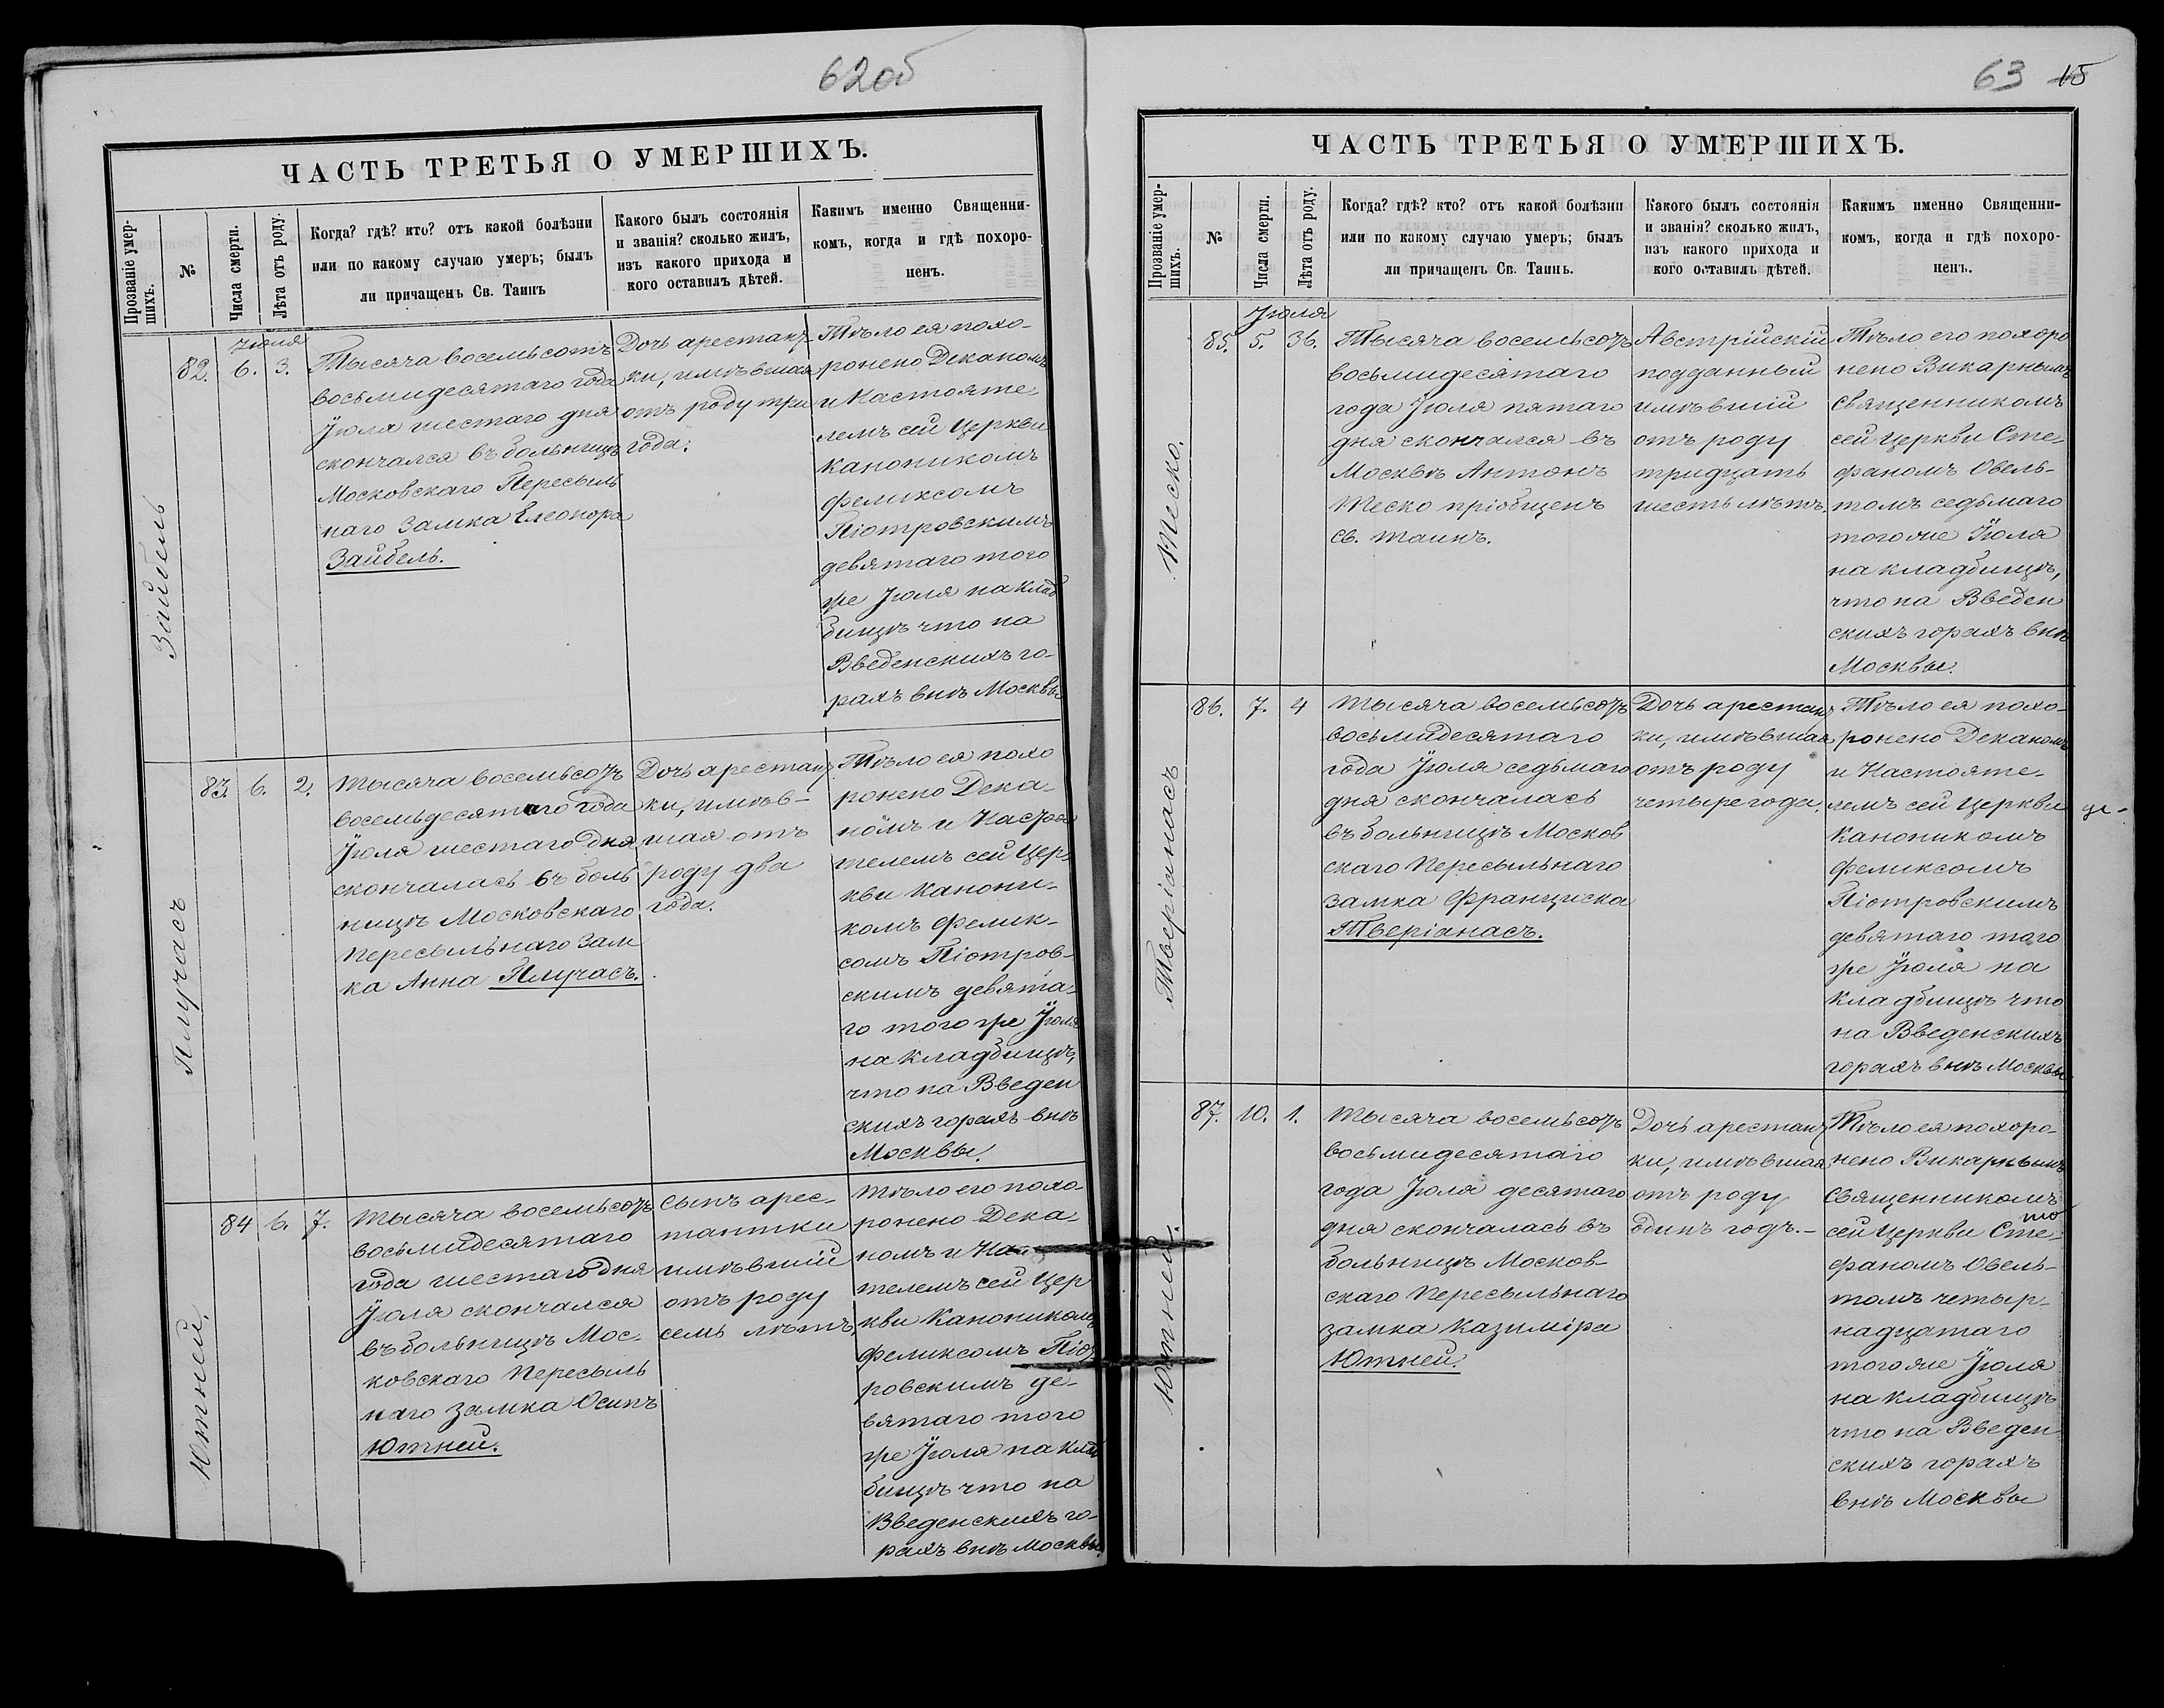 62об
ЧАСТЬ ТРЕТЬЯ О УМЕРШИХЪ.
Прозваніе умер-
шихъ.
№
Числа смерти.
Лѣта отъ роду.
Когда? гдѣ? кто? отъ какой болѣзни
или по какому случаю умеръ; былъ
ли причащенъ Св. Таинъ
Какого былъ состоянія
и званія? сколько жилъ,
изъ какого прихода и
кого оставилъ дѣтей.
Какимъ именно Священни-
комъ, когда и гдѣ похоро-
ненъ.
Зайбель
Іюля
82. 6. 3.
Тысяча восемьсотъ
восьмидесятаго года
Іюля шестаго дня
скончался въ больницѣ
Московскаго Пересыль
наго Замка Елеонора
Зайбель.
Дочь арестант
ки, имѣвшая
отъ роду три
года.
Тѣло ея похо-
ронено Деканомъ
и Настояте-
лемъ сей Церкви
Каноникомъ
Феликсомъ
Піотровскимъ
девятаго того
же Іюля на клад
бищѣ что на
Введенскихъ го-
рахъ внѣ Москвы
Плучасъ
83. 6. 2.
Тысяча восемьсотъ
восемьдесятаго года
Іюля шестаго дня
скончалась въ боль
ницѣ Московскаго
Пересыльнаго Зам
ка Анна Плучасъ.
Дочь арестант
ки, имѣв-
шая отъ
роду два
года.
Тѣло ея похо
ронено Дека-
номъ и Настоя
телемъ сей Цер-
кви Канони-
комъ Фелик-
сомъ Піотров-
скимъ девята-
го того же Іюля
на кладбищѣ,
что на Введен
скихъ горахъ внѣ
Москвы.
Ютней.
84 6. 7.
Тысяча восемьсотъ
восьмидесятаго
года шестаго дня
Іюля скончался
въ больницѣ Мос-
ковскаго Пересыль
наго замка Осипъ
Ютней.
Сынъ арес-
тантки
имѣвшій
отъ роду
семь лѣтъ.
Тѣло его похо
ронено Дека-
номъ и На
телемъ сей Цер
кви Каноникомъ
Феликсомъ Піот
ровскимъ де-
вятаго того
же Іюля на клад
бищѣ что на
Введенскихъ го-
рахъ внѣ Москвы.
63 15
ЧАСТЬ ТРЕТЬЯ О УМЕРШИХЪ.
Прозваніе умер-
шихъ.
№
Числа смерти.
Лѣта отъ роду.
Когда? гдѣ? кто? отъ какой болѣзни
или по какому случаю умеръ; былъ
ли причащенъ Св. Таинъ.
Какого былъ состоянія
и званія? сколько жилъ,
изъ какого прихода и
кого оставилъ дѣтей.
Какимъ именно Священни-
комъ, когда и гдѣ похоро-
ненъ.
Теско.
Іюля
85. 5. 36.
Тысяча восемьсотъ
восьмидесятаго
года Іюля пятаго
дня скончался въ
Москвѣ Антонъ
Теско пріобщенъ
Св. таинъ.
Австрійскій
подданный
имѣвшій
отъ роду
тридцать
шесть лѣтъ.
Тѣло его похоро
нено Викарнымъ
Священникомъ
сей Церкви Сте-
фаномъ Овель-
томъ седьмаго
того же Іюля
на кладбищѣ,
что на Введен
скихъ горахъ внѣ
Москвы.
Тверіанасъ
86. 7. 4
Тысяча восемьсотъ
восьмидесятаго
года Іюля седьмаго
дня скончалась
въ больницѣ Москов
скаго Пересыльнаго
замка Франциска
Тверіанасъ.
Дочь арестант
ки, имѣвшая
отъ роду
четыре года.
Тѣло ея похо-
ронено Деканомъ
и Настояте-
лемъ сей Церкви
Каноникомъ
Феликсомъ
Піотровскимъ
девятаго того
же Іюля на
кладбищѣ что
на Введенскихъ
горахъ внѣ Москвы
де-
Ютней.
87. 10. 1.
Тысяча восемьсотъ
восьмидесятаго
года Іюля десятаго
дня скончалась въ
больницѣ Москов-
скаго Пересыльнаго
замка Казиміра
Ютней.
Дочь арестант
ки, имѣвшая
отъ роду
одинъ годъ.-
Тѣло ея похоро-
нено Викарнымъ
Священникомъ
то
сей Церкви Сте-
фаномъ Овель-
томъ четыр-
надцатаго
того же Іюля
на кладбищѣ
что на Введен
скихъ горахъ
внѣ Москвы